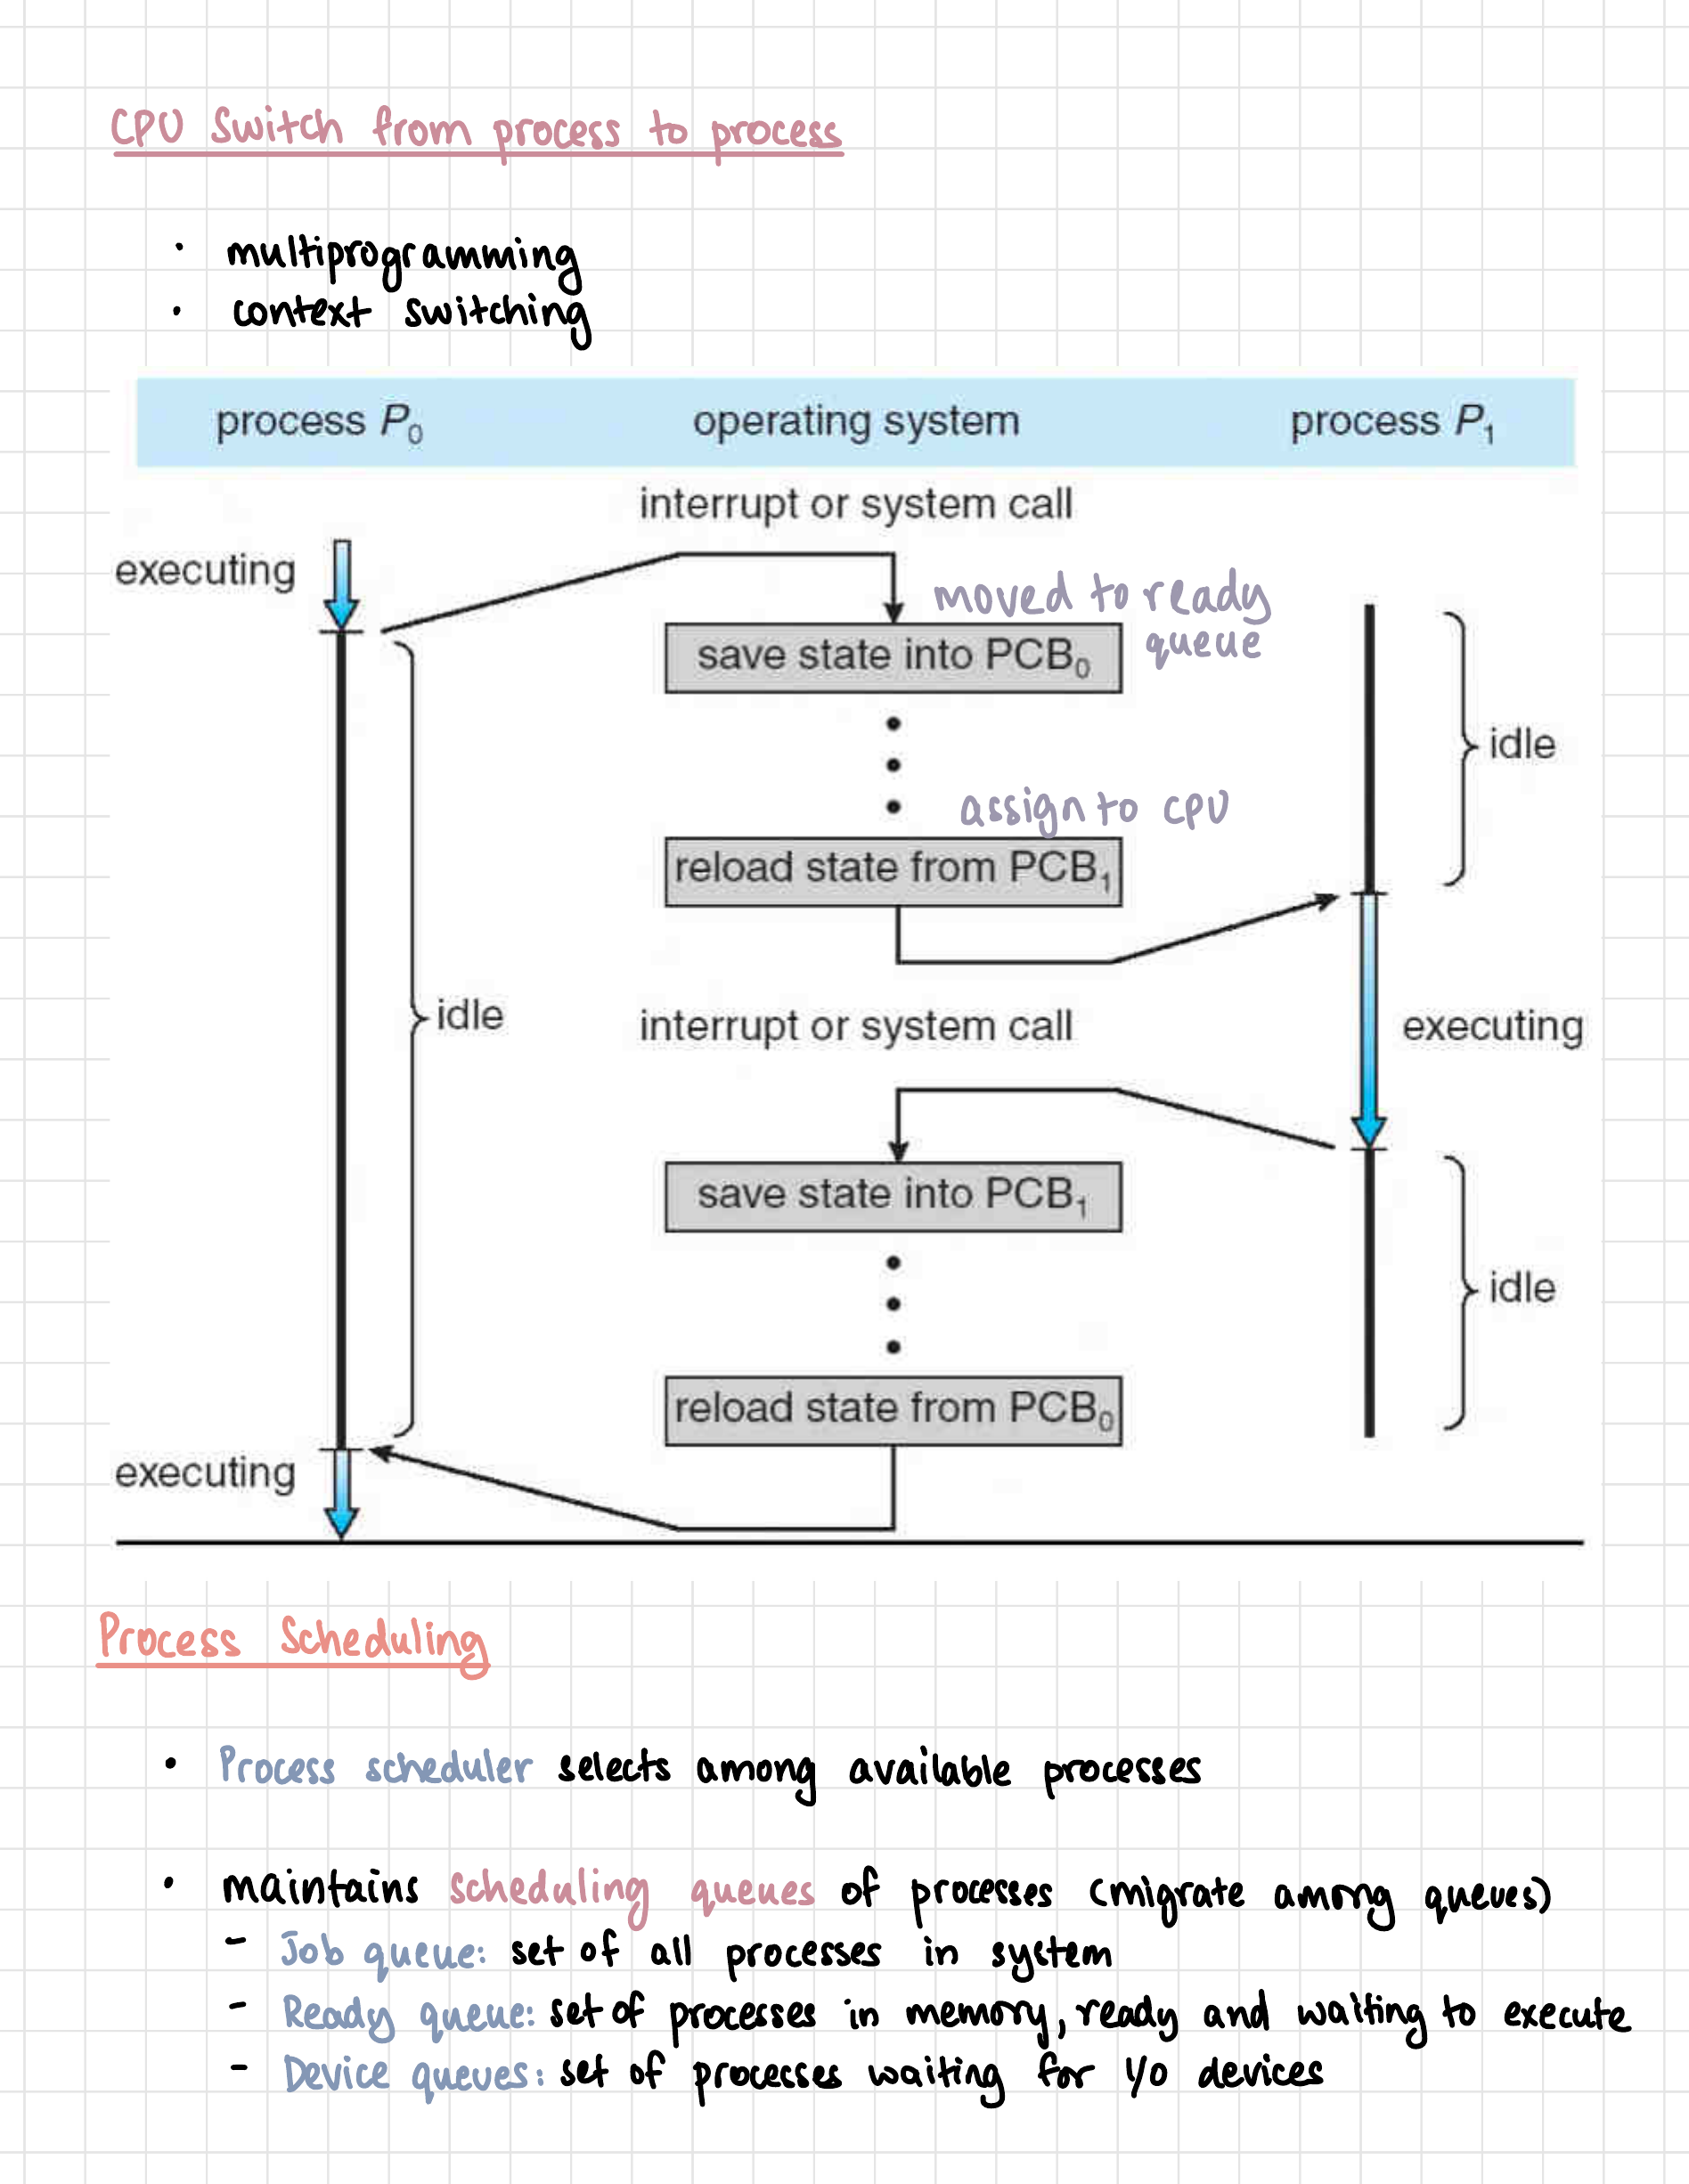 CPU Switch from process to process
· multiprogramming
· context switching
process P₀ operating system process P₁
interrupt or system call
executing
moved to ready
queue
save state into PCB₀
idle
assign to cpu
reload state from PCB₁
idle
interrupt or system call
executing
save state into PCB₁
idle
reload state from PCB₀
executing
Process Scheduling
· Process scheduler selects among available processes
· maintains scheduling queues of processes (migrate among queues)
- Job queue: set of all processes in system
- Ready queue: set of processes in memory, ready and waiting to execute
- Device queues: set of processes waiting for I/O devices